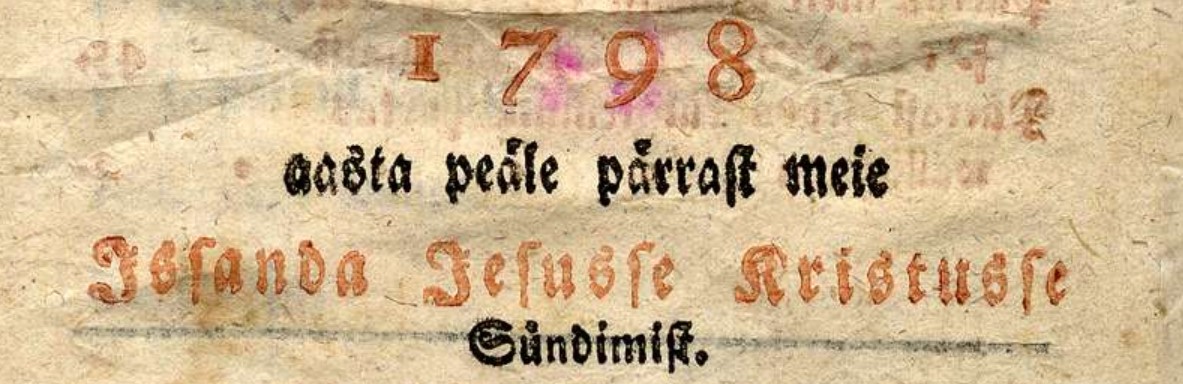 1798
aasta peäle pärrast meie
Issanda Jesusse Kristusse
Sündimist.